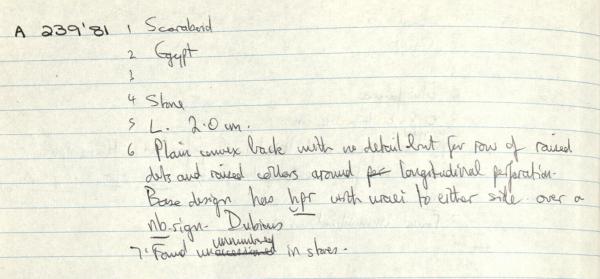 A 239'81 1 Scaraboid
2 Egypt
3
4 Stone
5 L. 2.0 cm.
6 Plain convex back with no detail but for row of raised
dots and raised collars around per longitudinal perforation.
Base design has hpr with uraei to either side over a
nb-sign. Dubious
unnumbered
7. Found unaccessioned in stores.